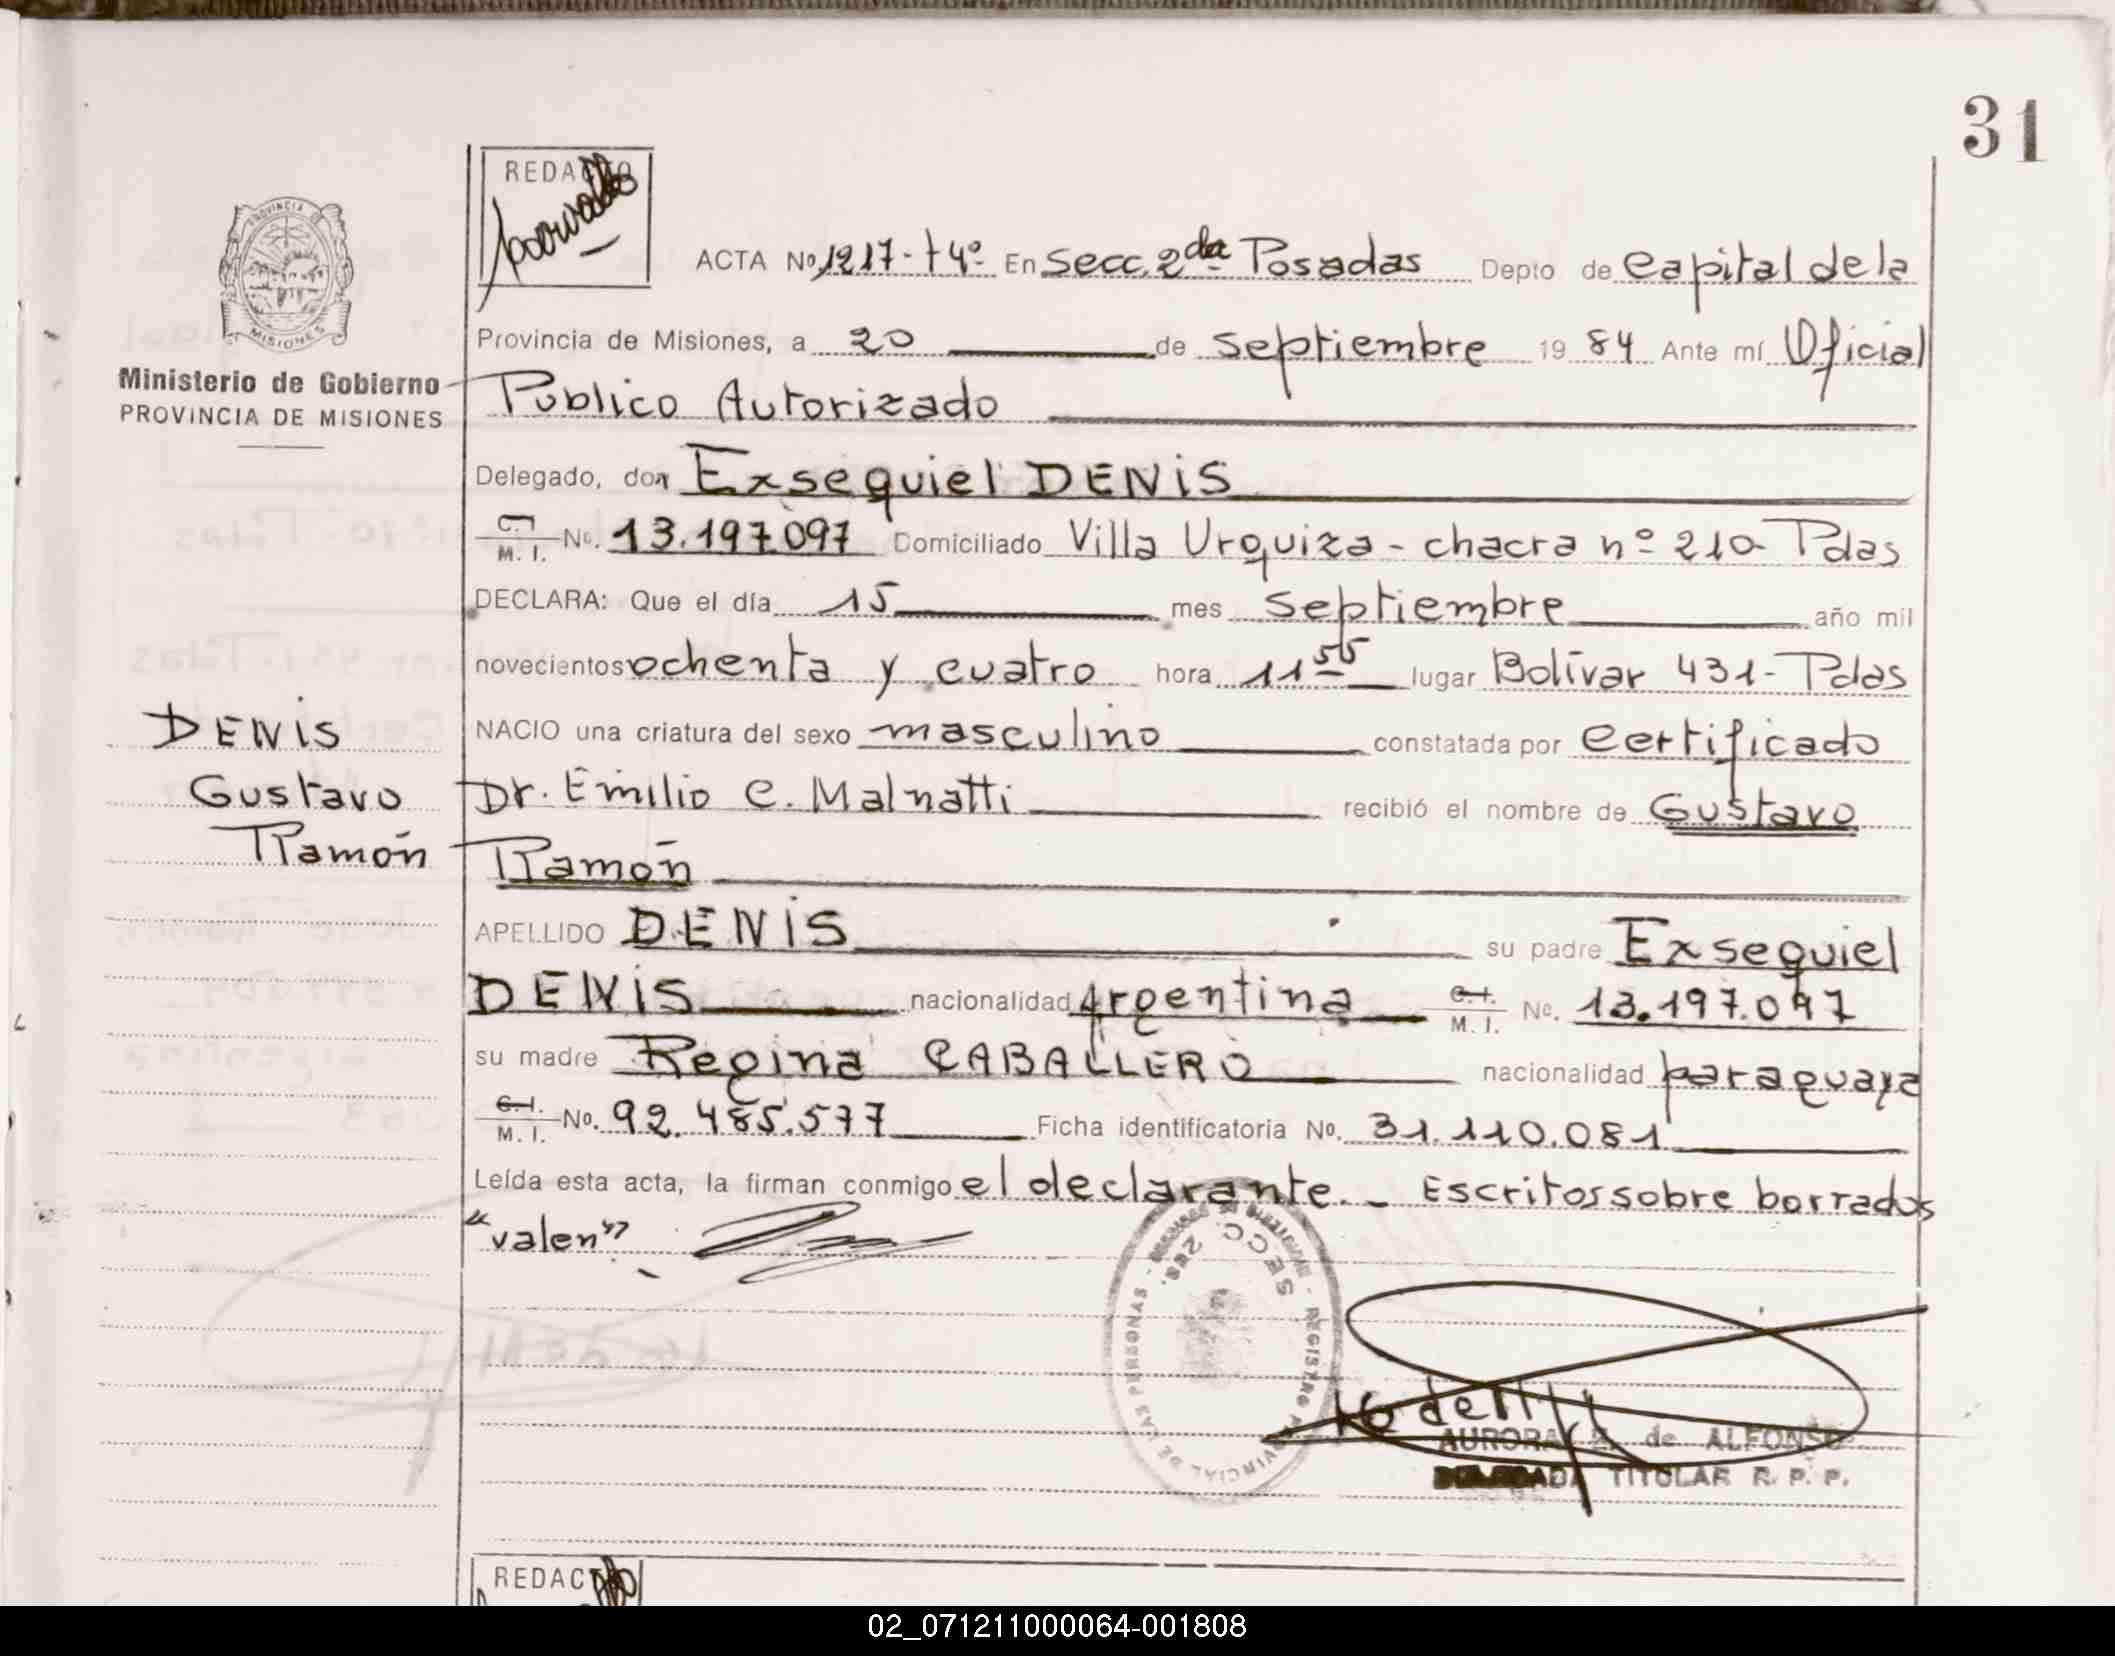 31
REDACTO
PROVINCIA DE
MISIONES
Ministerio de Gobierno
PROVINCIA DE MISIONES
ACTA Nº 1217-t4º En Secc. 2da Posadas Depto de Capital de la
Provincia de Misiones, a 20 de Septiembre 1984 Ante mí Oficial
Publico Autorizado
Delegado, don Exsequiel DENIS
C.I. M. I. No. 13.197.097 Domiciliado Villa Urquiza - chacra nº 210 - Pdas
DECLARA: Que el día 15 mes Septiembre año mil
novecientos ochenta y cuatro hora 11 55 lugar Bolívar 431 - Pdas
NACIO una criatura del sexo masculino constatada por Certificado
Dr. Emilio C. Malnatti recibió el nombre de Gustavo
Ramón
DENIS
Gustavo
Ramón
APELLIDO DENIS su padre Exsequiel
DENIS nacionalidad Argentina C.I. M. I. No. 13.197.097
su madre Regina CABALLERO nacionalidad paraguaya
C.I. M. I. No. 92.485.577 Ficha identificatoria No. 31.110.081
Leída esta acta, la firman conmigo el declarante. - Escritos sobre borrados
"valen".
SECC. 2da.
REGISTRO PROVINCIAL DE LAS PERSONAS
AURORA de ALFONSO
DELEGADA TITULAR R. P. P.
REDACTO
02_071211000064-001808